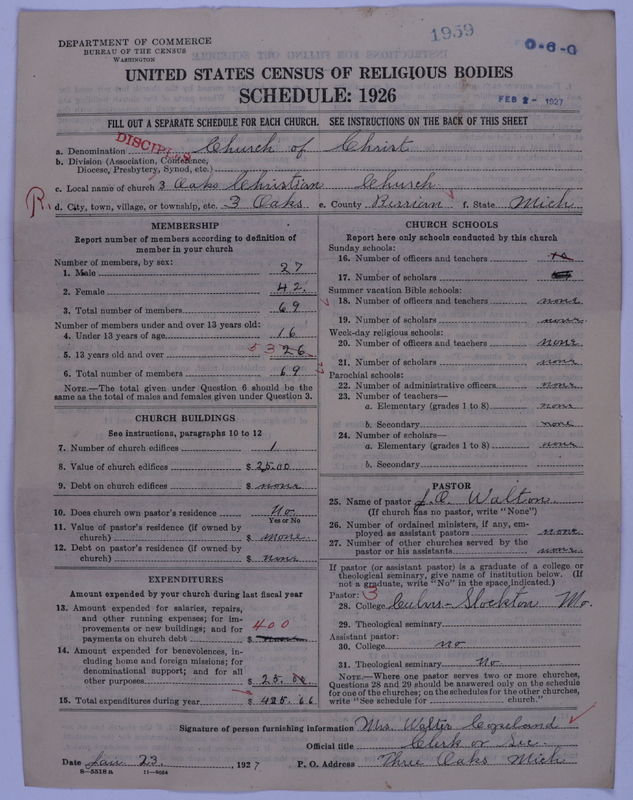 1959
0-6-0
DEPARTMENT OF COMMERCE
BUREAU OF THE CENSUS
WASHINGTON
UNITED STATES CENSUS OF RELIGIOUS BODIES
SCHEDULE: 1926
FEB 2- 1927
FILL OUT A SEPARATE SCHEDULE FOR EACH CHURCH. SEE INSTRUCTIONS ON THE BACK OF THIS SHEET
DISCIPLES
a. Denomination Church of Christ
b. Division (Association, Conference, Diocese, Presbytery, Synod, etc.)
c. Local name of church 3 Oaks Christian Church
R. d. City, town, village, or township, etc. 3 Oaks e. County Berrian f. State Mich
MEMBERSHIP
Report number of members according to definition of
member in your church
Number of members, by sex:
1. Male 27
2. Female 42.
3. Total number of members 69
Number of members under and over 13 years old:
4. Under 13 years of age 16
5. 13 years old and over 53 26
6. Total number of members 69
NOTE.—The total given under Question 6 should be the
same as the total of males and females given under Question 3.
CHURCH BUILDINGS
See instructions, paragraphs 10 to 12
7. Number of church edifices 1
8. Value of church edifices $ 25.00
9. Debt on church edifices $ none
10. Does church own pastor's residence? No.
Yes or No
11. Value of pastor's residence (if owned by
church) $ none
12. Debt on pastor's residence (if owned by
church) $ none
EXPENDITURES
Amount expended by your church during last fiscal year
13. Amount expended for salaries, repairs,
and other running expenses; for im-
provements or new buildings; and for
payments on church debt 400 $ none
14. Amount expended for benevolences, in-
cluding home and foreign missions; for
denominational support; and for all
other purposes $ 25.
15. Total expenditures during year $ 425.66
CHURCH SCHOOLS
Report here only schools conducted by this church
Sunday schools:
16. Number of officers and teachers
17. Number of scholars
Summer vacation Bible schools:
18. Number of officers and teachers none
19. Number of scholars none
Week-day religious schools:
20. Number of officers and teachers none
21. Number of scholars none
Parochial schools:
22. Number of administrative officers none
23. Number of teachers—
a. Elementary (grades 1 to 8) none
b. Secondary none
24. Number of scholars—
a. Elementary (grades 1 to 8) none
b. Secondary
PASTOR
25. Name of pastor Walton
(If church has no pastor, write "None")
26. Number of ordained ministers, if any, em-
ployed as assistant pastors none
27. Number of other churches served by the
pastor or his assistants none
If pastor (or assistant pastor) is a graduate of a college or
theological seminary, give name of institution below. (If
not a graduate, write "No" in the space indicated.)
Pastor: 3
28. College Culver-Stockton Mo.
29. Theological seminary
Assistant pastor:
30. College no
31. Theological seminary No
NOTE.—Where one pastor serves two or more churches,
Questions 28 and 29 should be answered only on the schedule
for one of the churches; on the schedules for the other churches,
write "See schedule for church."
Signature of person furnishing information Mrs. Walter Copeland
Official title Clerk or Sec.
Date Jan 23, 1927 P. O. Address Three Oaks Mich
8-5518a 11-8664